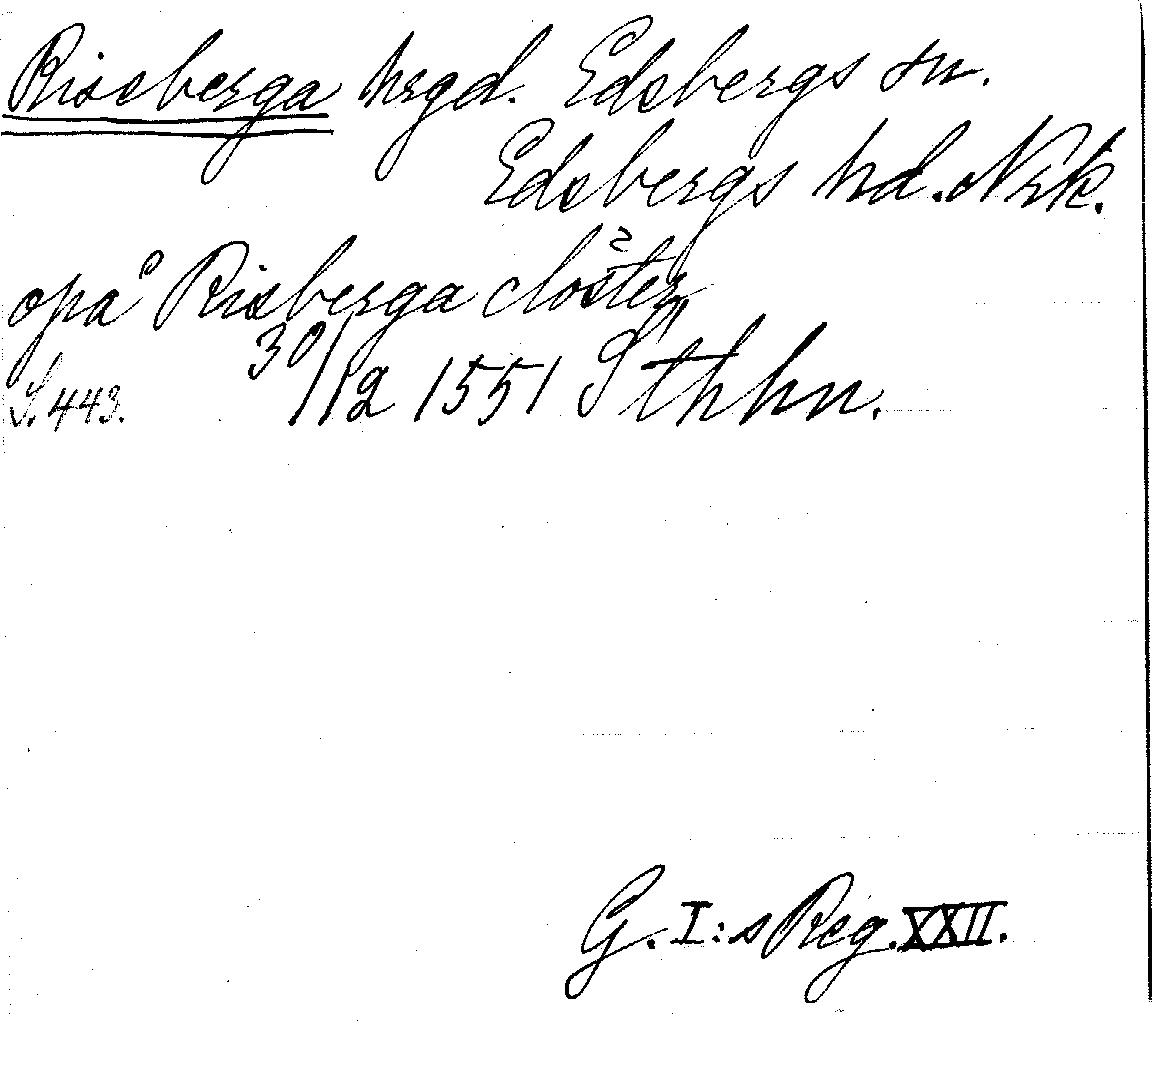 Riseberga hrgd. Edsbergs sn.
Edsbergs hd. Nrk.
opå Risberga closter
30/12 1551 Sthhn.
S. 443.
G. I:s Reg. XXII.